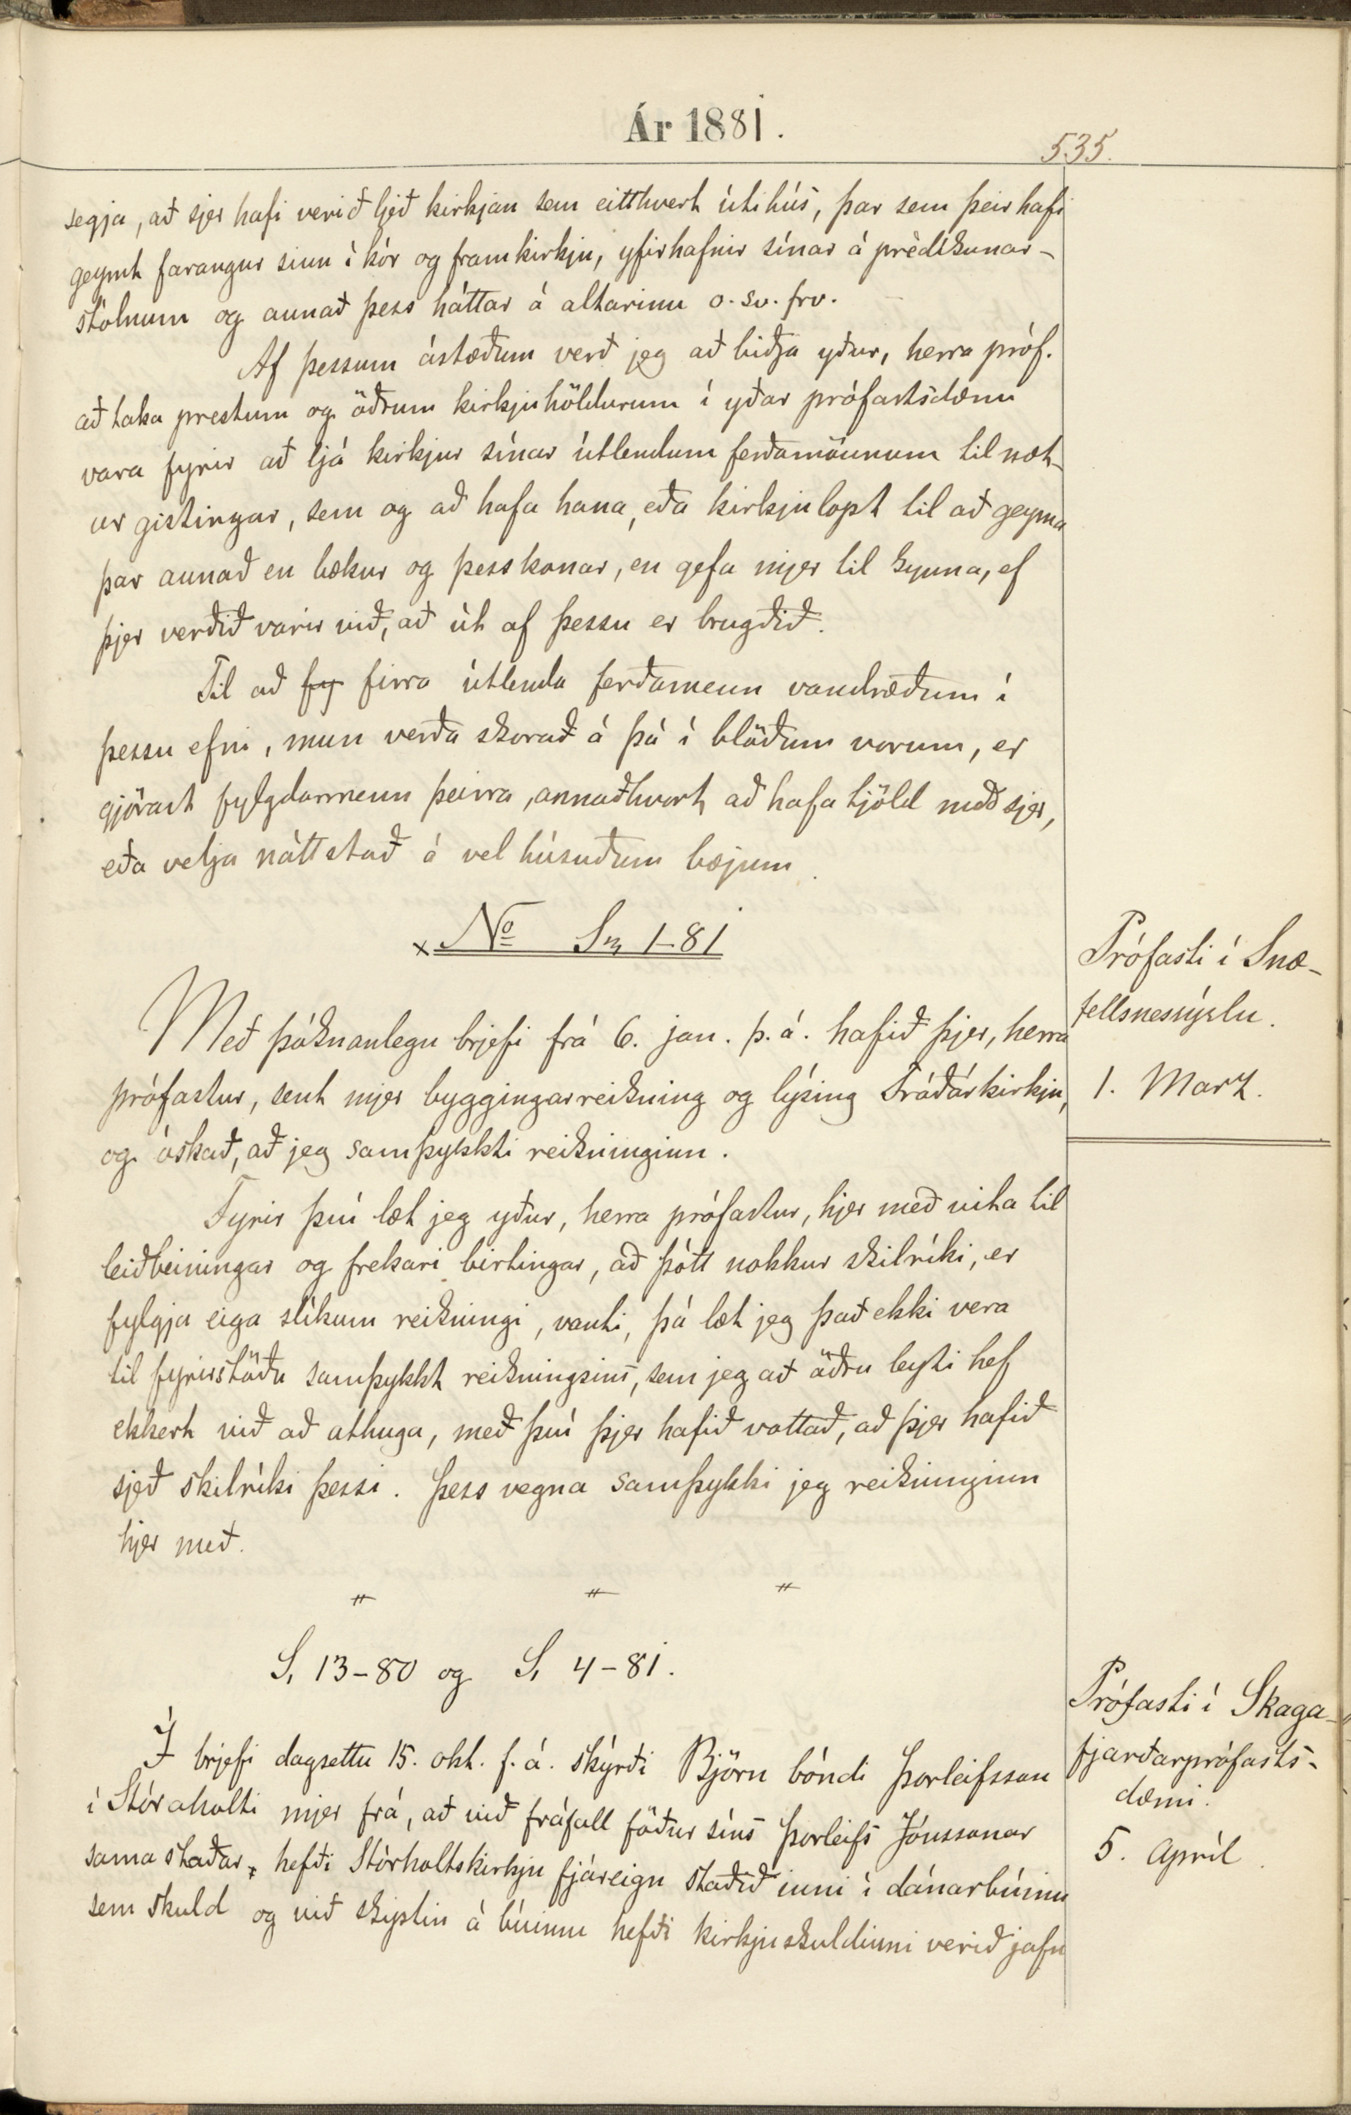 Ár 1881.
535.
segja, að sjer hafi verið ljeð kirkjan sem eitthvert útihús, þar sem þeir hafi
geymt farangur sinn í kór og framkirkju, yfirhafnir sínar á prédikunar-
stólnum og annað þess háttar á altarinu o. sv. frv.
Af þessum ástæðum verð jeg að biðja yður, herra próf.
að taka prestum og öðrum kirkjuhöldurum í yðar prófastsdæmi
vara fyrir að ljá kirkjur sínar útlendum ferðamönnum til næt-
urgistingar, sem og að hafa hana, eða kirkjulopt til að geyma
þar annað en bækur og þesskonar, en gefa mjer til kynna, ef
þjer verðið varir við, að út af þessu er brugðið.
Til að fy firra útlenda ferðamenn vandræðum í
þessu efni, mun verða skorað á þá í blöðum vorum, er
gjörast fylgdarmenn þeirra, annaðhvort að hafa tjöld með sjer,
eða velja náttstað á vel húsuðum bæjum.
x No Sn 1-81
Prófasti í Snæ-
fellsnessýslu.
1. Marz.
Með þóknanlegu brjefi frá 6. jan. þ. á. hafið þjer, herra
prófastur, sent mjer byggingarreikning og lýsing Fróðárkirkju,
og óskað, að jeg samþykkti reikninginn.
Fyrir því læt jeg yður, herra prófastur, hjer með vita til
leiðbeiningar og frekari birtingar, að þótt nokkur skilríki, er
fylgja eiga slíkum reikningi, vanti, þá læt jeg það ekki vera
til fyrirstöðu samþykkt reikningsins, sem jeg að öðru leyti hef
ekkert við að athuga, með því þjer hafið vottað, að þjer hafið
sjeð skilríki þessi. Þess vegna samþykki jeg reikninginn
hjer með.
〃 〃 〃
S, 13-80 og S, 4-81.
Prófasti í Skaga-
fjarðarprófasts-
dæmi.
5. apríl.
Í brjefi dagsettu 15. okt. f. á. skýrði Björn bóndi Þorleifsson
í Stóraholti mjer frá, að við fráfall föður síns Þorleifs Jónssonar
sama staðar, hefði Stórholtskirkju fjáreign staðið inni í dánarbúinu
sem skuld og við skiptin á búinu hefði kirkjuskuldinni verið jafn